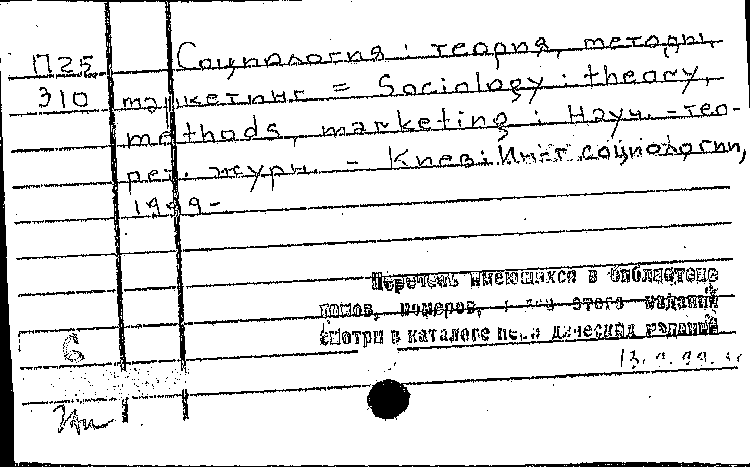 П25 Социология : теория, методы,
310 маркетинг = Sociology : theory,
methods, marketing : Науч.-тео-
рет. журн. - Киев: Ин-т социологии,
1999-
Перечень имеющихся в библиотеке
томов, номеров, этого издания
смотри в каталоге периодических изданий
6